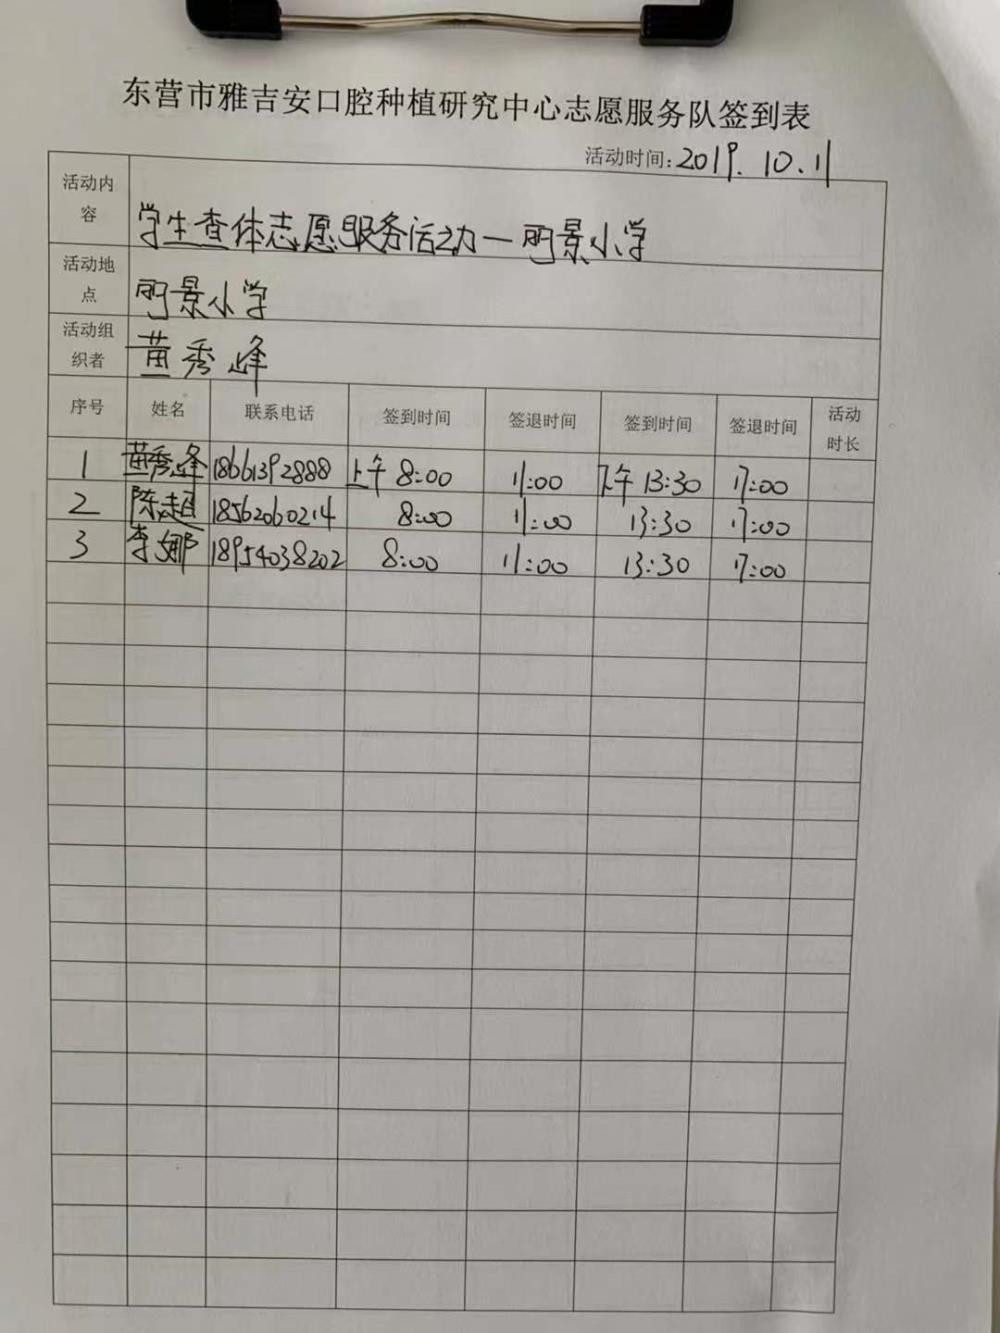 东营市雅吉安口腔种植研究中心志愿服务队签到表
活动时间：2019.10.11
活动内容 学生查体志愿服务活动—明景小学
活动地点 明景小学
活动组织者 苗秀峰
序号 姓名 联系电话 签到时间 签退时间 签到时间 签退时间 活动时长
1 苗秀峰 18661392888 上午8:00 11:00 下午13:30 17:00
2 陈超 18562060214 8:00 11:00 13:30 17:00
3 李娜 18954038202 8:00 11:00 13:30 17:00